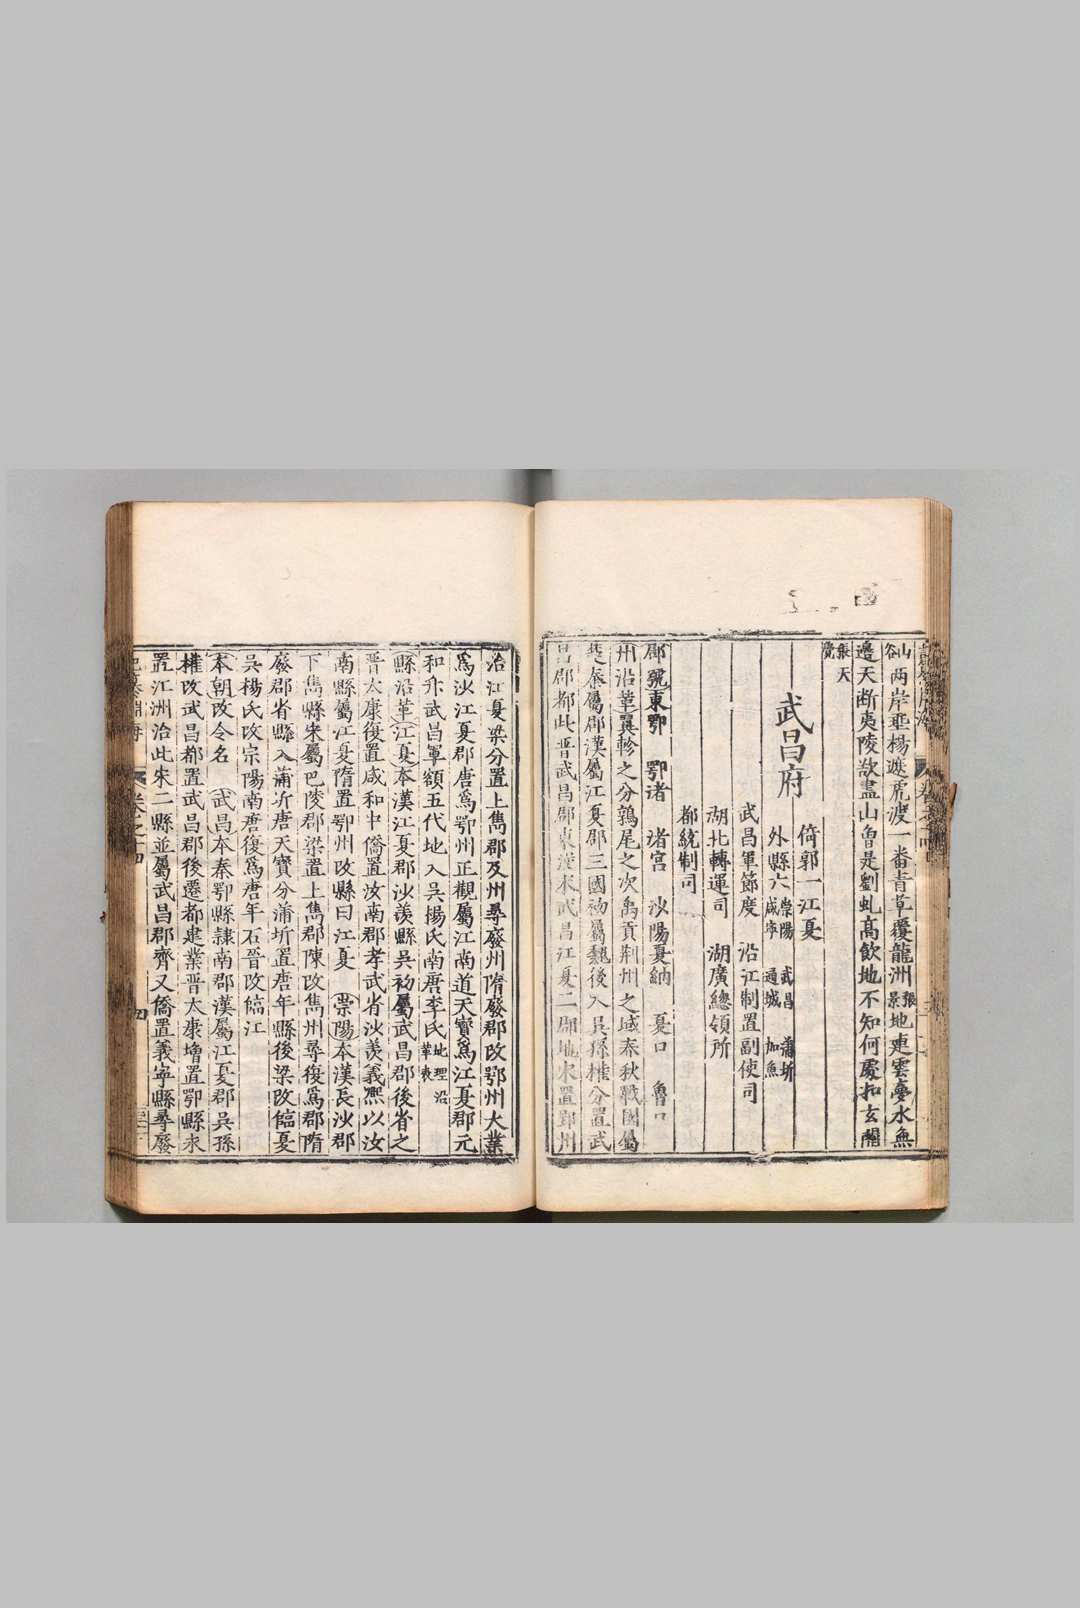 山谷兩岸垂楊遮虎渡一番青草覆龍洲張景地連雲夢水無
邊天斷夷陵欲盡山魯是劉虬高飲地不知何處扣玄關
張天覺
武昌府
倚郭一江夏
外縣六崇陽 武昌 蒲圻 咸寧 通城 加魚
武昌軍節度 沿江制置副使司
湖北轉運司 湖廣總領所
都統制司
郡號東鄂 鄂渚 渚宮 沙陽夏納 夏口 魯口
州沿革翼軫之分鶉尾之次禹貢荊州之域春秋戰國屬
楚秦屬郡漢屬江夏郡三國初屬魏後入吳孫權分置武
昌郡都此晉武昌郡東渡宋武昌江夏二郡地宋置郢州
治江夏梁分置上雋郡及州尋廢州隋廢郡改鄂州大業
為沙江夏郡唐為鄂州正觀屬江南道天寶為江夏郡元
和升武昌軍額五代地入吳揚氏南唐李氏地理沿革表
縣沿革江夏本漢江夏郡沙羨縣吳初屬武昌郡後省之
晉太康復置咸和中僑置汝南郡孝武省沙羨義熙以汝
南縣屬江夏隋置鄂州改縣曰江夏 崇陽本漢長沙郡
下雋縣宋屬巴陵郡梁置上雋郡陳改雋州尋復為郡隋
廢郡省縣入蒲圻唐天寶分蒲圻置唐年縣後梁改臨夏
吳楊氏改宗陽南唐復為唐年石晉改臨江
本朝改今名 武昌本秦鄂縣隸南郡漢屬江夏郡吳孫
權改武昌都置武昌郡後遷都建業晉太康增置鄂縣永
置江洲治此宋二縣並屬武昌郡齊又僑置義寧縣尋廢
卷之十四